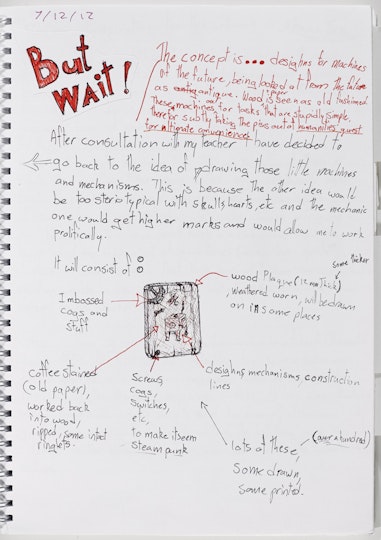 7/12/12
But
WAIT!
The concept is... desighns for machines
of the future, being looked at from the future
as antique. Wood is seen as old fashioned
These machines, for tasks that are stupidly simple,
therefor subtly taking the piss out of humanities quest
for ultimate convenience
After consultation with my teacher I have decided to
go back to the idea of drawing those little machines
and mechanisms. This is because the other idea would
be too steriotypical with skulls hearts, etc and the mechanic
one, would get higher marks and would allow me to work
prolifically.
It will consist of :
some thicker
wood Plaque (12mm thick)
, weathered worn, will be drawn
on in some places
Imbossed
cogs and
stuff
coffee stained
(old paper),
worked back
into wood,
ripped, some
ringlets.
Screws,
cogs,
switches,
etc,
to make it seem
steam punk
desighns, mechanisms, construction
lines
lots of these, (over a hundred)
some drawn,
some printed.